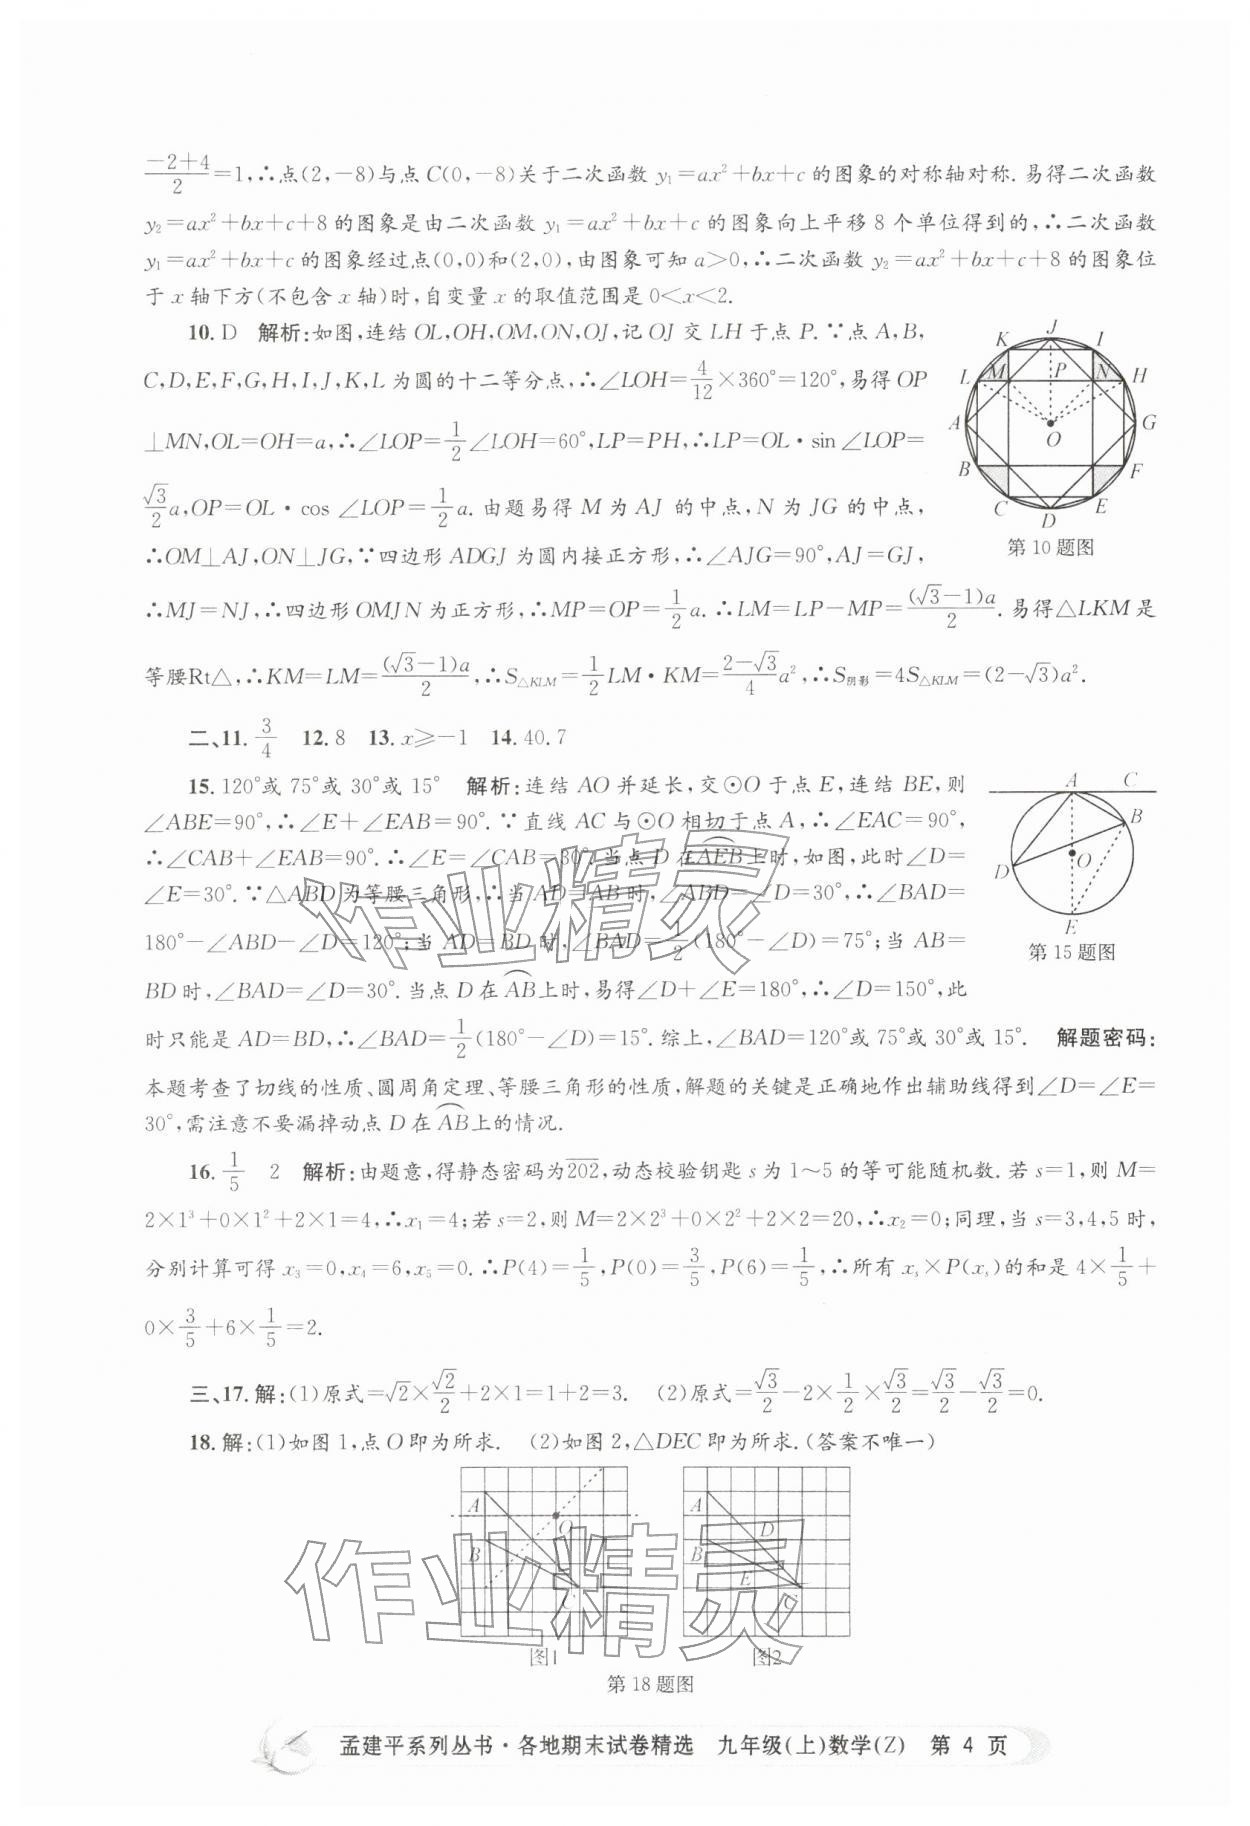 $\frac{-2+4}{2}$=1,∴点(2,-8)与点C(0,-8)关于二次函数 y₁=ax²+bx+c 的图象的对称轴对称.易得二次函数
y₂=ax²+bx+c+8的图象是由二次函数 y₁=ax²+bx+c 的图象向上平移8个单位得到的,∴二次函数
y₁=ax²+bx+c的图象经过点(0,0)和(2,0),由图象可知a>0,∴二次函数 y₂=ax²+bx+c+8的图象位
于x轴下方(不包含x轴)时,自变量x的取值范围是0<x<2.
10. D 解析:如图,连结OL,OH,OM,ON,OJ,记OJ交LH于点P.∵点A,B,
C,D,E,F,G,H,I,J,K,L为圆的十二等分点,∴∠LOH=$\frac{4}{12}$×360°=120°,易得OP
⊥MN,OL=OH=a,∴∠LOP=$\frac{1}{2}$∠LOH=60°,LP=PH,∴LP=OL·sin∠LOP=
$\frac{\sqrt{3}}{2}$a,OP=OL·cos∠LOP=$\frac{1}{2}$a.由题易得M为AJ的中点,N为JG的中点,
∴OM⊥AJ,ON⊥JG,∵四边形ADGJ为圆内接正方形,∴∠AJG=90°,AJ=GJ,
∴MJ=NJ,∴四边形OMJN为正方形,∴MP=OP=$\frac{1}{2}$a.∴LM=LP-MP=$\frac{(\sqrt{3}-1)a}{2}$.易得△LKM是
等腰Rt△,∴KM=LM=$\frac{(\sqrt{3}-1)a}{2}$,∴S△KLM=$\frac{1}{2}$LM·KM=$\frac{2-\sqrt{3}}{4}$a²,∴S阴影=4S△KLM=(2-$\sqrt{3}$)a².
K J I
L M P N H
A O G
B F
C D E
第10题图
二、11. $\frac{3}{4}$ 12. 8 13. x≥-1 14. 40.7
15. 120°或75°或30°或15° 解析:连结AO并延长,交⊙O于点E,连结BE,则
∠ABE=90°,∴∠E+∠EAB=90°.∵直线AC与⊙O相切于点A,∴∠EAC=90°,
∴∠CAB+∠EAB=90°.∴∠E=∠CAB=30°.当点D在$\overset{\frown}{AEB}$上时,如图,此时∠D=
∠E=30°.∵△ABD为等腰三角形,∴当AD=AB时,∠ABD=∠D=30°,∴∠BAD=
180°-∠ABD-∠D=120°;当AD=BD时,∠BAD=$\frac{1}{2}$(180°-∠D)=75°;当AB=
BD时,∠BAD=∠D=30°.当点D在$\overset{\frown}{AB}$上时,易得∠D+∠E=180°,∴∠D=150°,此
时只能是AD=BD,∴∠BAD=$\frac{1}{2}$(180°-∠D)=15°.综上,∠BAD=120°或75°或30°或15°. 解题密码:
本题考查了切线的性质、圆周角定理、等腰三角形的性质,解题的关键是正确地作出辅助线得到∠D=∠E=
30°,需注意不要漏掉动点D在$\overset{\frown}{AB}$上的情况.
A C
B
D O
E
第15题图
16. $\frac{1}{5}$ 2 解析:由题意,得静态密码为$\overline{202}$,动态校验钥匙s为1~5的等可能随机数.若s=1,则M=
2×1³+0×1²+2×1=4,∴x₁=4;若s=2,则M=2×2³+0×2²+2×2=20,∴x₂=0;同理,当s=3,4,5时,
分别计算可得x₃=0,x₄=6,x₅=0.∴P(4)=$\frac{1}{5}$,P(0)=$\frac{3}{5}$,P(6)=$\frac{1}{5}$,∴所有xₛ×P(xₛ)的和是4×$\frac{1}{5}$+
0×$\frac{3}{5}$+6×$\frac{1}{5}$=2.
三、17.解:(1)原式=$\sqrt{2}$×$\frac{\sqrt{2}}{2}$+2×1=1+2=3. (2)原式=$\frac{\sqrt{3}}{2}$-2×$\frac{1}{2}$×$\frac{\sqrt{3}}{2}$=$\frac{\sqrt{3}}{2}$-$\frac{\sqrt{3}}{2}$=0.
18.解:(1)如图1,点O即为所求. (2)如图2,△DEC即为所求.(答案不唯一)
A O B C
A D B E C
图1 图2
第18题图
作业精灵
作业精灵
孟建平系列丛书·各地期末试卷精选 九年级(上)数学(Z) 第4页